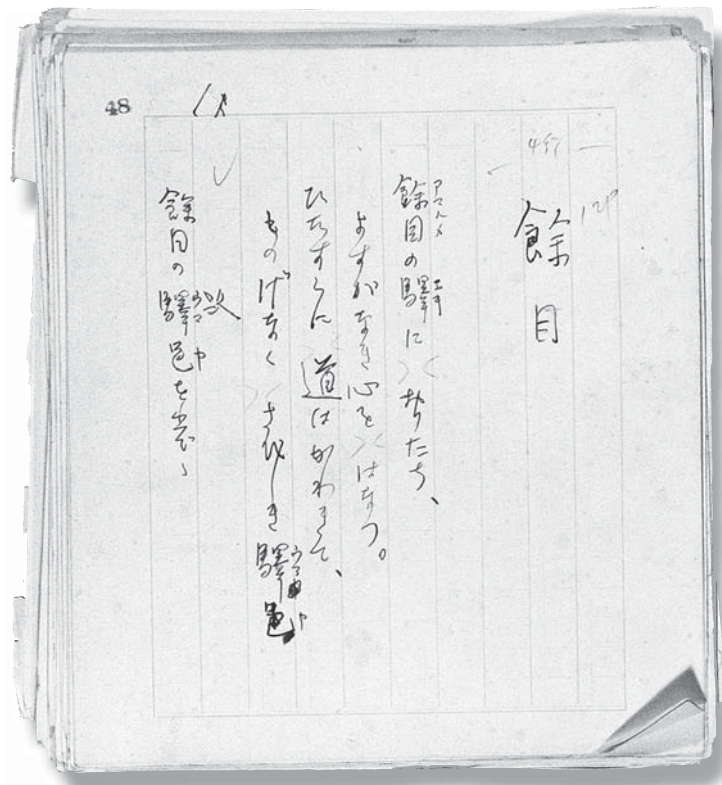 48
4行
12P
餘目
餘目の驛に おりたち、
アマルメ
エキ
よすがなき心を はなつ。
ひたすらに 道はかわきて、
ものげなく さびしき驛邑
餘目の驛邑を